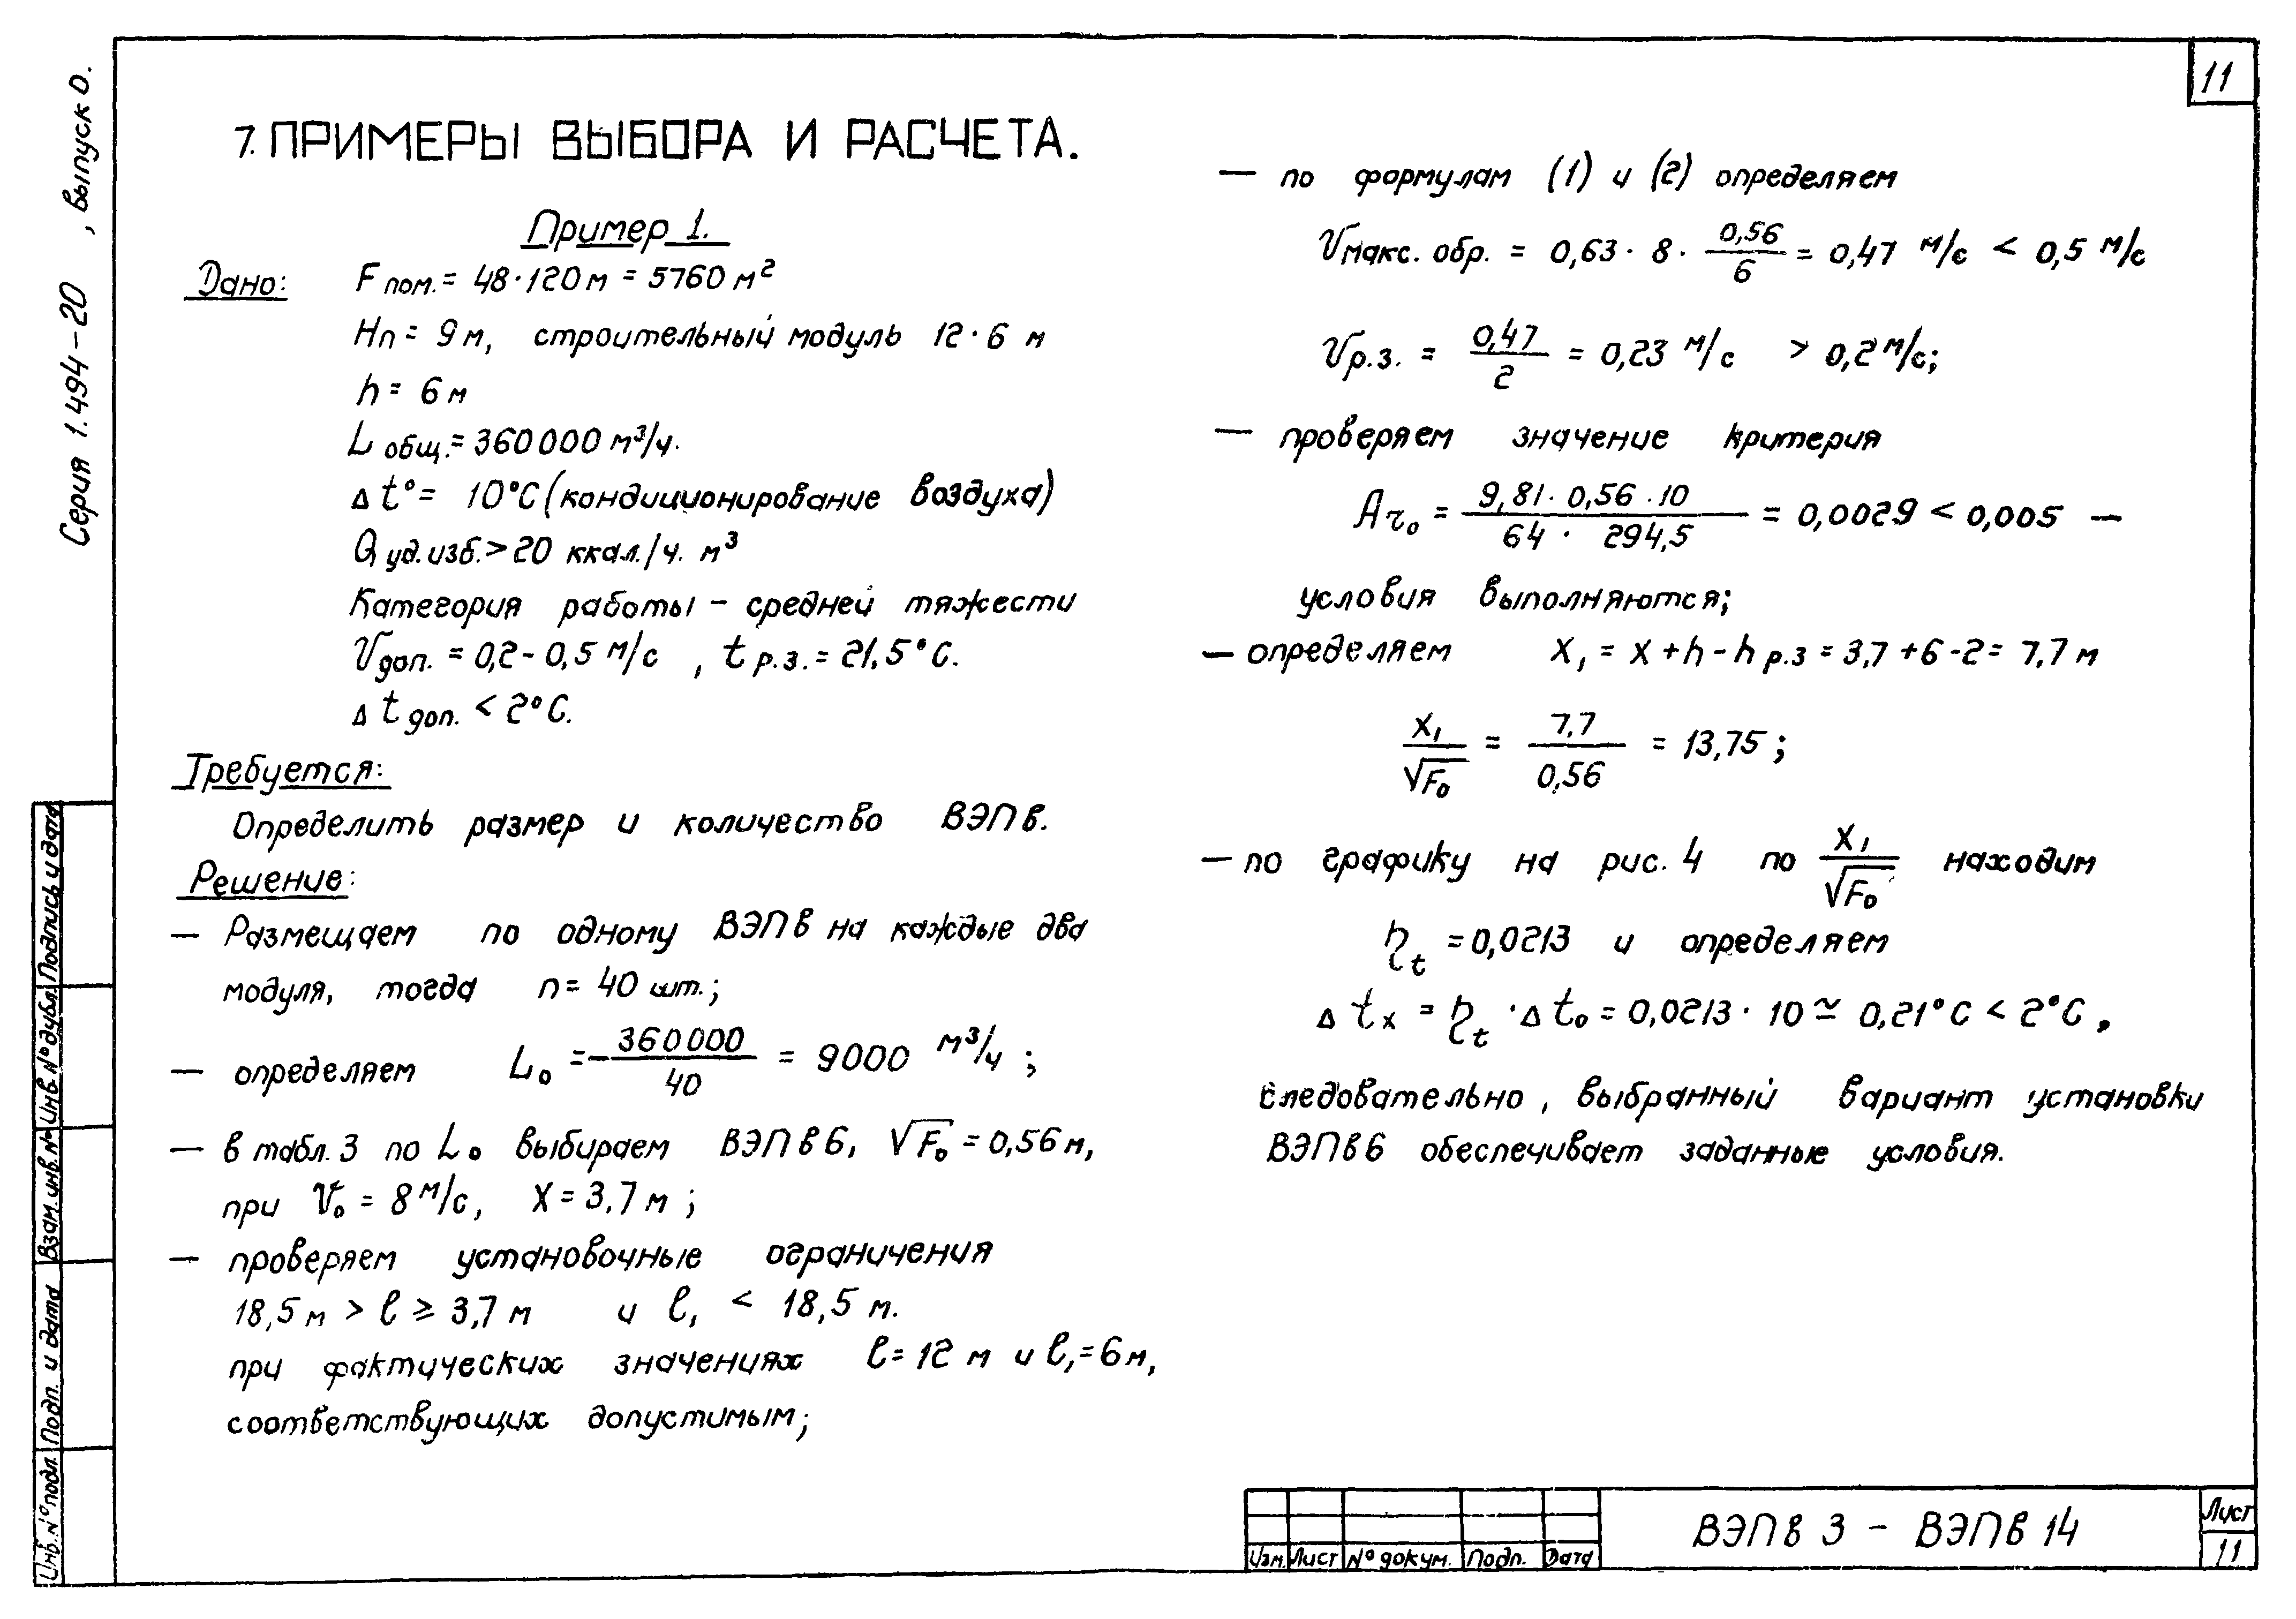 11
Серия 1.494-20 , выпуск 0.
7. ПРИМЕРЫ ВЫБОРА И РАСЧЕТА.
Пример 1.
Дано: F пом. = 48·120 м = 5760 м²
Hп = 9 м, строительный модуль 12·6 м
h = 6 м
L общ. = 360000 м³/ч.
Δt° = 10°С (кондиционирование воздуха)
Q уд.изб. > 20 ккал./ч. м³
Категория работы – средней тяжести
Vдоп. = 0,2 - 0,5 м/с , t р.з. = 21,5°С.
Δt доп. < 2°С.
Требуется:
Определить размер и количество ВЭПв.
Решение:
— Размещаем по одному ВЭПв на каждые два
модуля, тогда n = 40 шт.;
— определяем L₀ = 360000/40 = 9000 м³/ч ;
— в табл. 3 по L₀ выбираем ВЭПв6, √F₀ = 0,56 м,
при V₀ = 8 м/с, X = 3,7 м ;
— проверяем установочные ограничения
18,5 м > ℓ ≥ 3,7 м и ℓ₁ < 18,5 м.
при фактических значениях ℓ = 12 м и ℓ₁ = 6 м,
соответствующих допустимым;
— по формулам (1) и (2) определяем
Vмакс. обр. = 0,63 · 8 · 0,56/6 = 0,47 м/с < 0,5 м/с
Vр.з. = 0,47/2 = 0,23 м/с > 0,2 м/с;
— проверяем значение критерия
Ar₀ = 9,81 · 0,56 · 10 / 64 · 294,5 = 0,0029 < 0,005 —
условия выполняются;
— определяем X₁ = X + h - h р.з = 3,7 + 6 - 2 = 7,7 м
X₁/√F₀ = 7,7/0,56 = 13,75 ;
— по графику на рис. 4 по X₁/√F₀ находим
η t = 0,0213 и определяем
Δt x = η t · Δt₀ = 0,0213 · 10 ≃ 0,21°С < 2°С ,
следовательно, выбранный вариант установки
ВЭПв6 обеспечивает заданные условия.
Инв. N° подл. Подп. и дата Взам. инв. N° Инв. N° дубл. Подпись и дата
Изм. Лист N° докум. Подп. Дата
ВЭПв 3 – ВЭПв 14
Лист
11